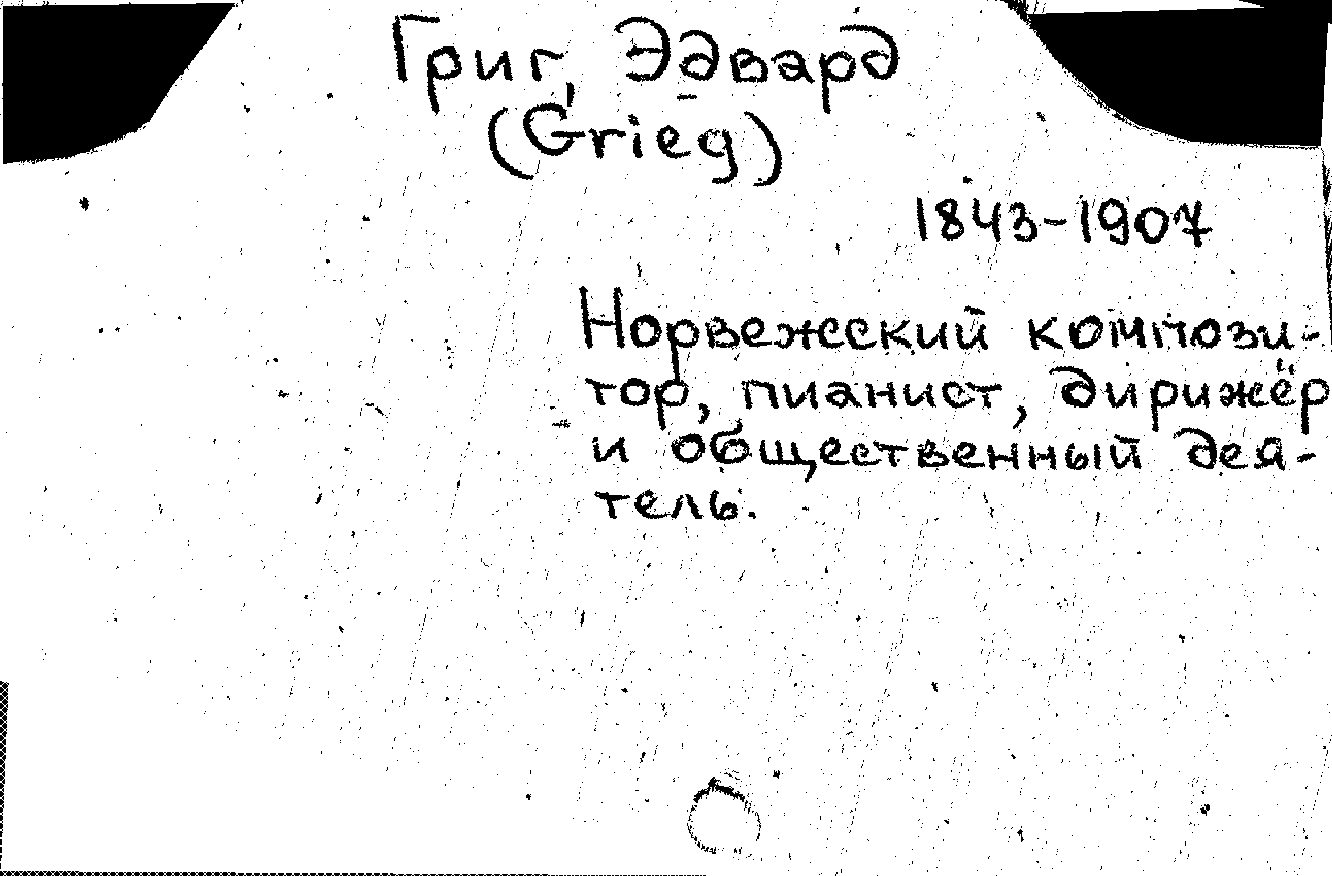 Григ, Эдвард
(Grieg)
1843-1907
Норвежский компози-
тор, пианист, дирижёр
и общественный дея-
тель.